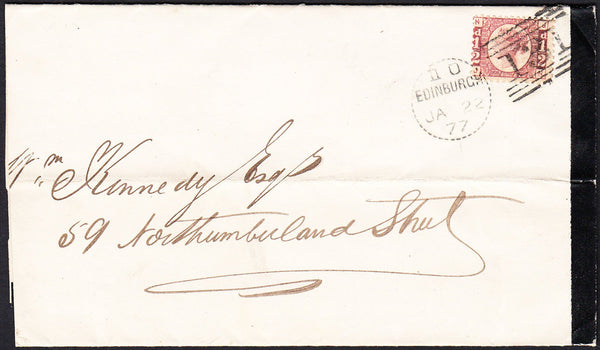 131
EDINBURGH
JA 22
77
Wm Kennedy Esqr
59 Northumberland Street